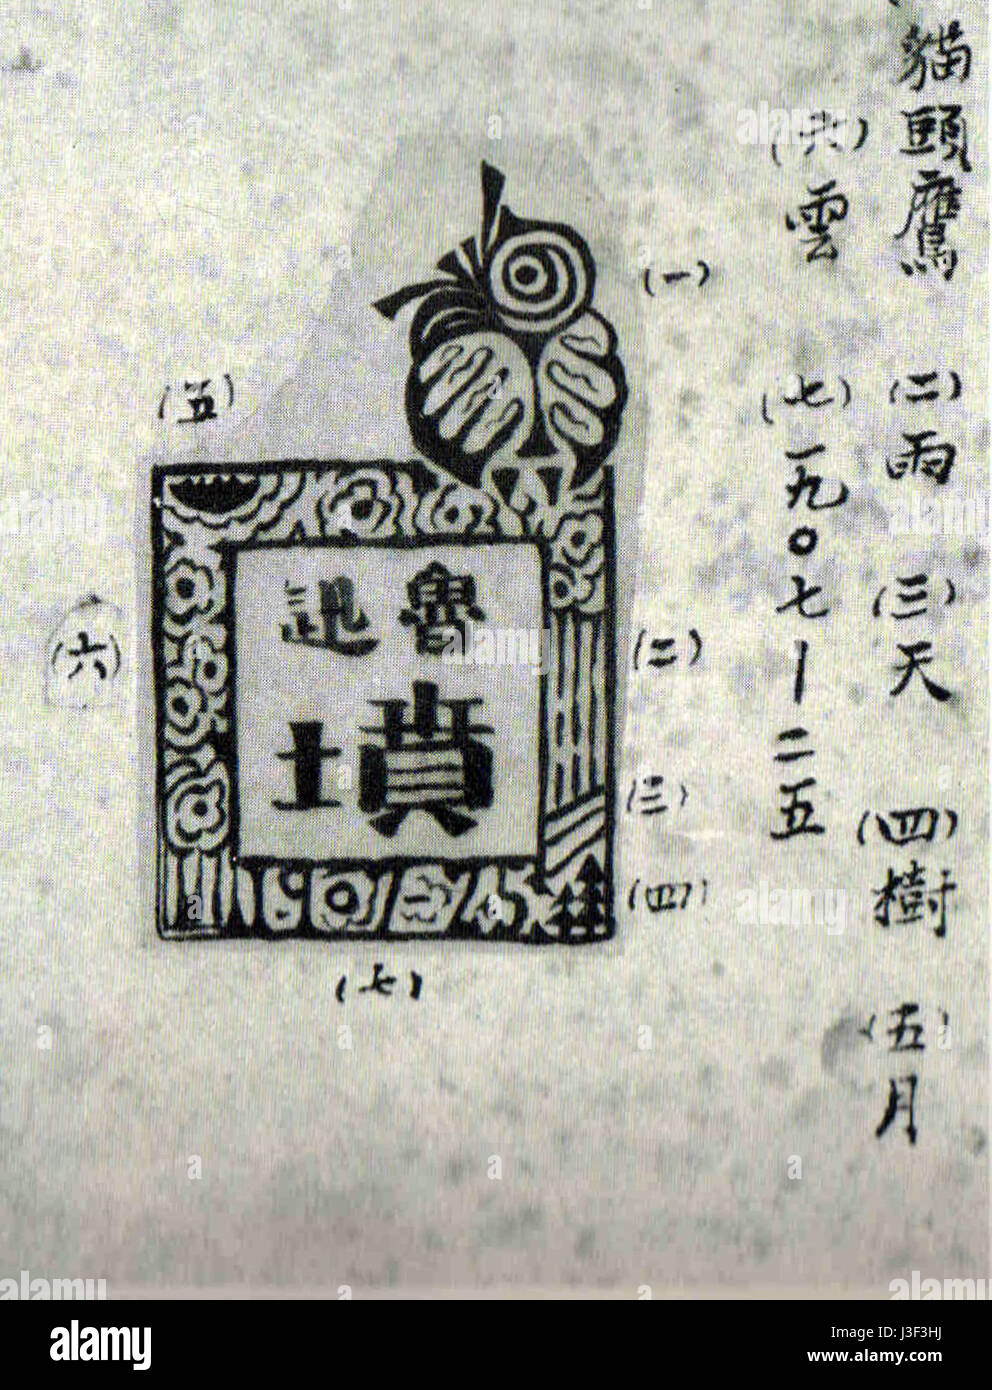 貓頭鷹 (二)雨 (三)天 (四)樹 (五)月
(六)雲 (七)一九〇七—二五
(一)
(二)
(三)
(四)
(五)
(六)
(七)
魯迅
墳
alamy
Image ID: J3F3HJ
www.alamy.com